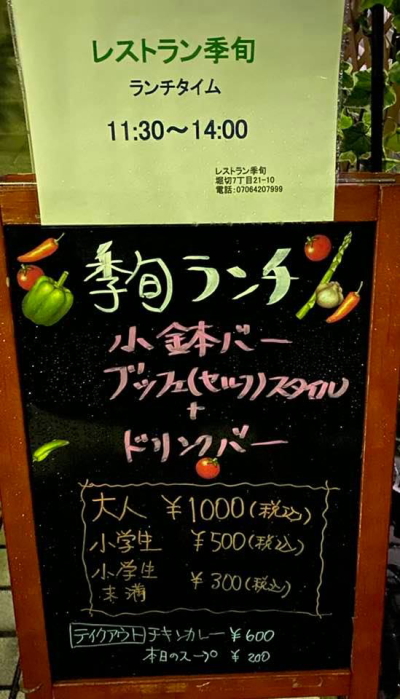 レストラン季旬
ランチタイム
11:30～14:00
レストラン季旬
堀切7丁目21-10
電話:07064207999
季旬ランチ
小鉢バー
ブッフェ(セルフ)スタイル
+
ドリンクバー
大人 ¥1000(税込)
小学生 ¥500(税込)
小学生
未満 ¥300(税込)
テイクアウト チキンカレー ¥600
本日のスープ ¥200